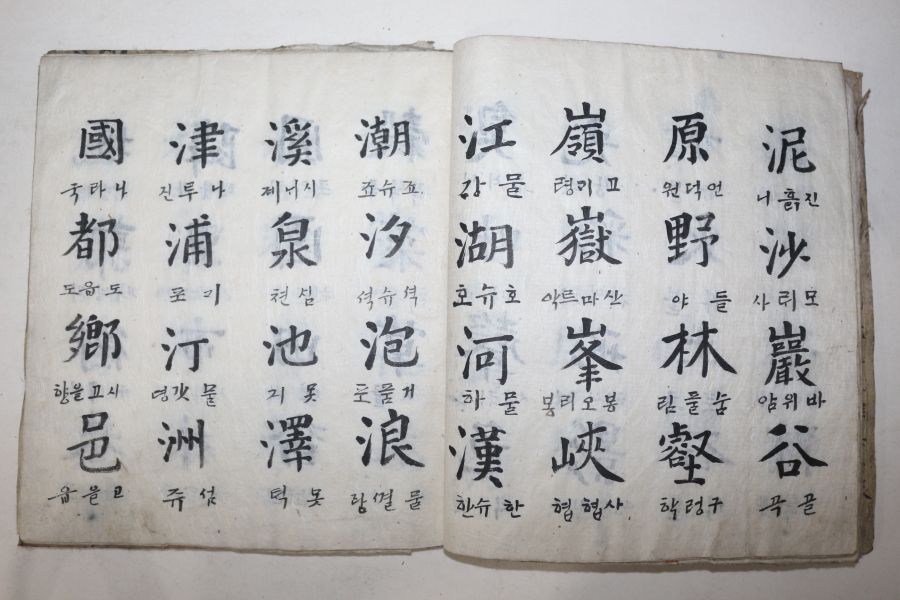 泥
진흙니
沙
모릐사
巖
바위암
谷
골곡
原
언덕원
野
들야
林
숩풀림
壑
구렁학
嶺
고기령
嶽
산마르악
峯
봉오리봉
峽
사협협
江
물강
湖
호슈호
河
물하
漢
한슈한
潮
죠슈죠
汐
셕슈셕
泡
거품포
浪
물결랑
溪
시니계
泉
심쳔
池
못지
澤
못턱
津
나루진
浦
기포
汀
물갓뎡
洲
셤쥬
國
나라국
都
도읍도
鄕
시고을향
邑
고을읍